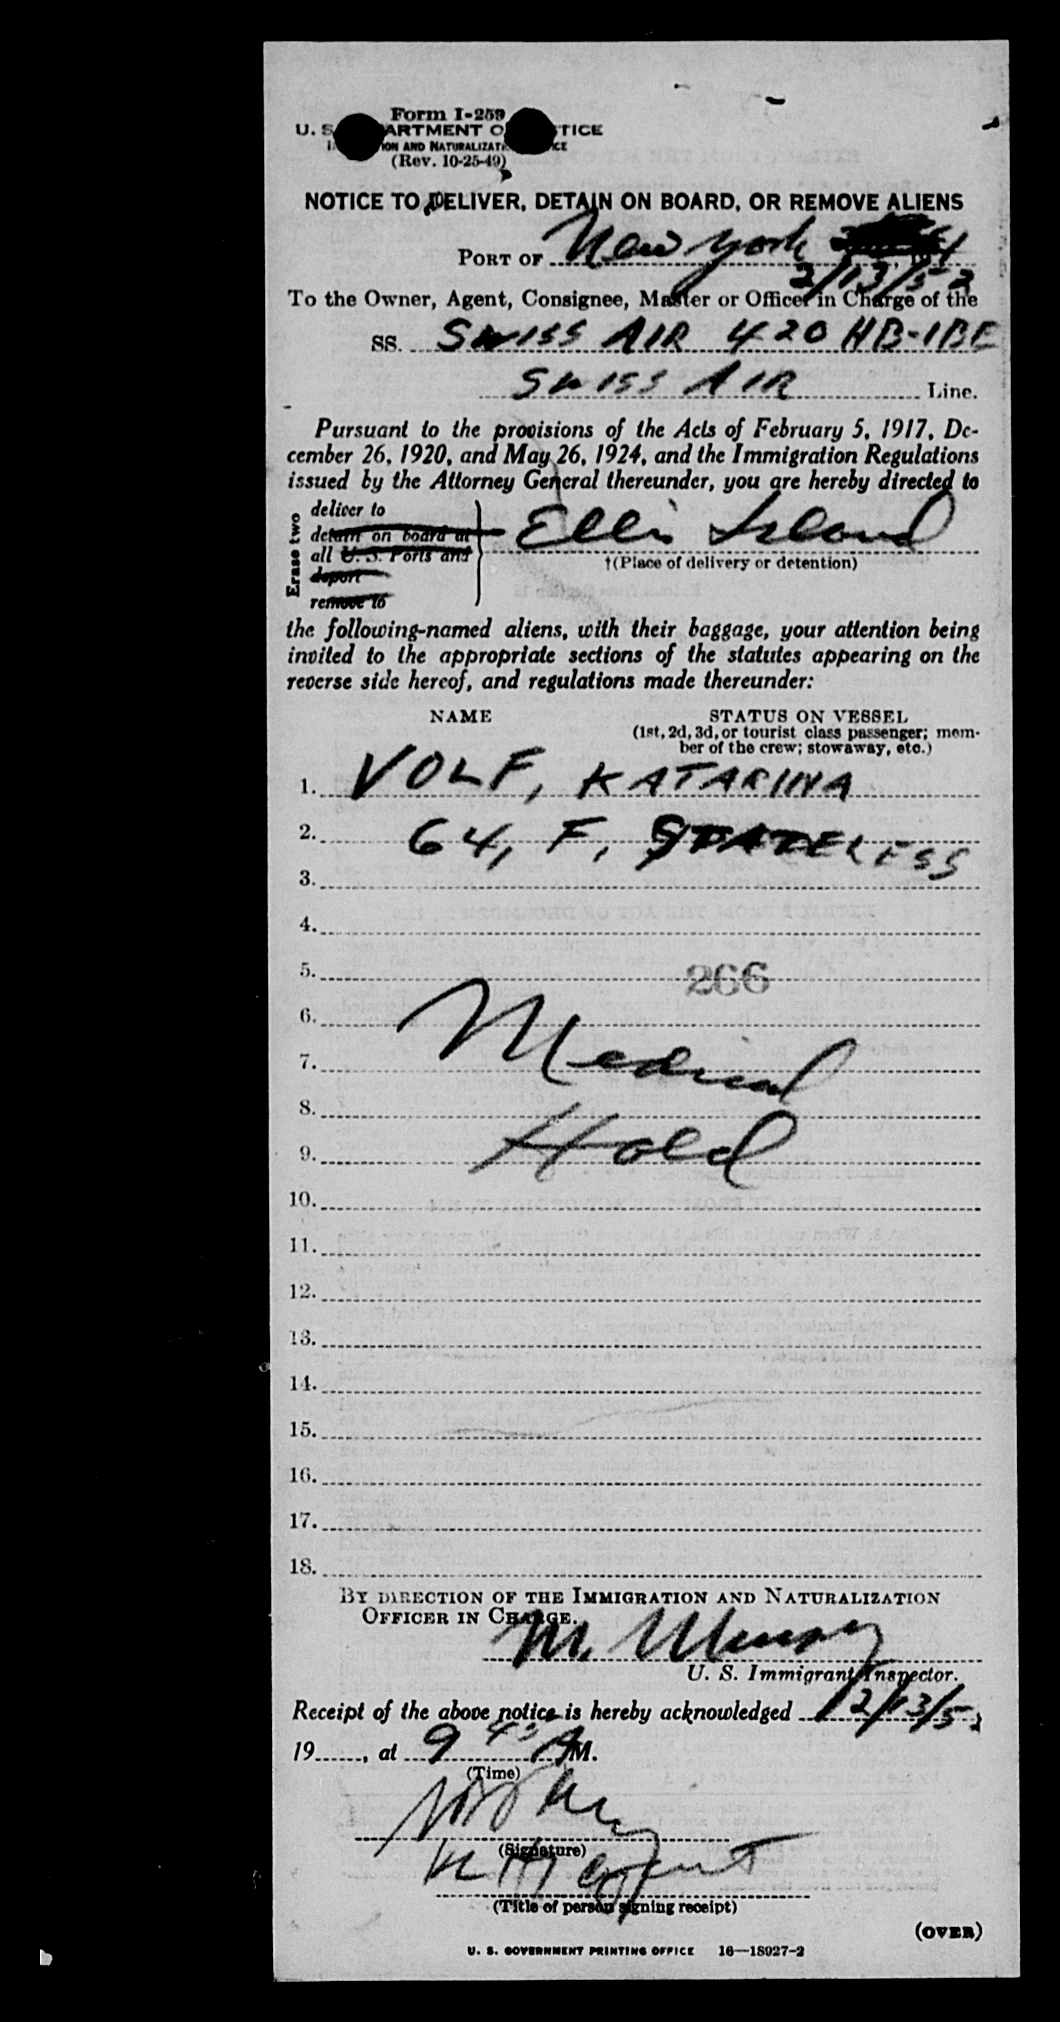 Form I-259
U. S. DEPARTMENT OF JUSTICE
IMMIGRATION AND NATURALIZATION SERVICE
(Rev. 10-25-49)
NOTICE TO DELIVER, DETAIN ON BOARD, OR REMOVE ALIENS
PORT OF New York
2/13/52
To the Owner, Agent, Consignee, Master or Officer in Charge of the
SS. SWISS AIR 420 HB-IBE
SWISS AIR Line.
Pursuant to the provisions of the Acts of February 5, 1917, De-
cember 26, 1920, and May 26, 1924, and the Immigration Regulations
issued by the Attorney General thereunder, you are hereby directed to
Erase two
deliver to
detain on board at
all U. S. Ports and
deport
remove to
Ellis Island
†(Place of delivery or detention)
the following-named aliens, with their baggage, your attention being
invited to the appropriate sections of the statutes appearing on the
reverse side hereof, and regulations made thereunder:
NAME STATUS ON VESSEL
(1st, 2d, 3d, or tourist class passenger; mem-
ber of the crew; stowaway, etc.)
1. VOLF, KATARINA
2. 64, F, STATELESS
3.
4.
5. 266
6.
7. Medical
8.
9. Hold
10.
11.
12.
13.
14.
15.
16.
17.
18.
BY DIRECTION OF THE IMMIGRATION AND NATURALIZATION
OFFICER IN CHARGE.
M.
U. S. Immigrant Inspector.
Receipt of the above notice is hereby acknowledged 2/13/52
19......, at 9 45 AM.
(Time)
(Signature)
agent
(Title of person signing receipt)
(OVER)
U. S. GOVERNMENT PRINTING OFFICE 16—18927-2